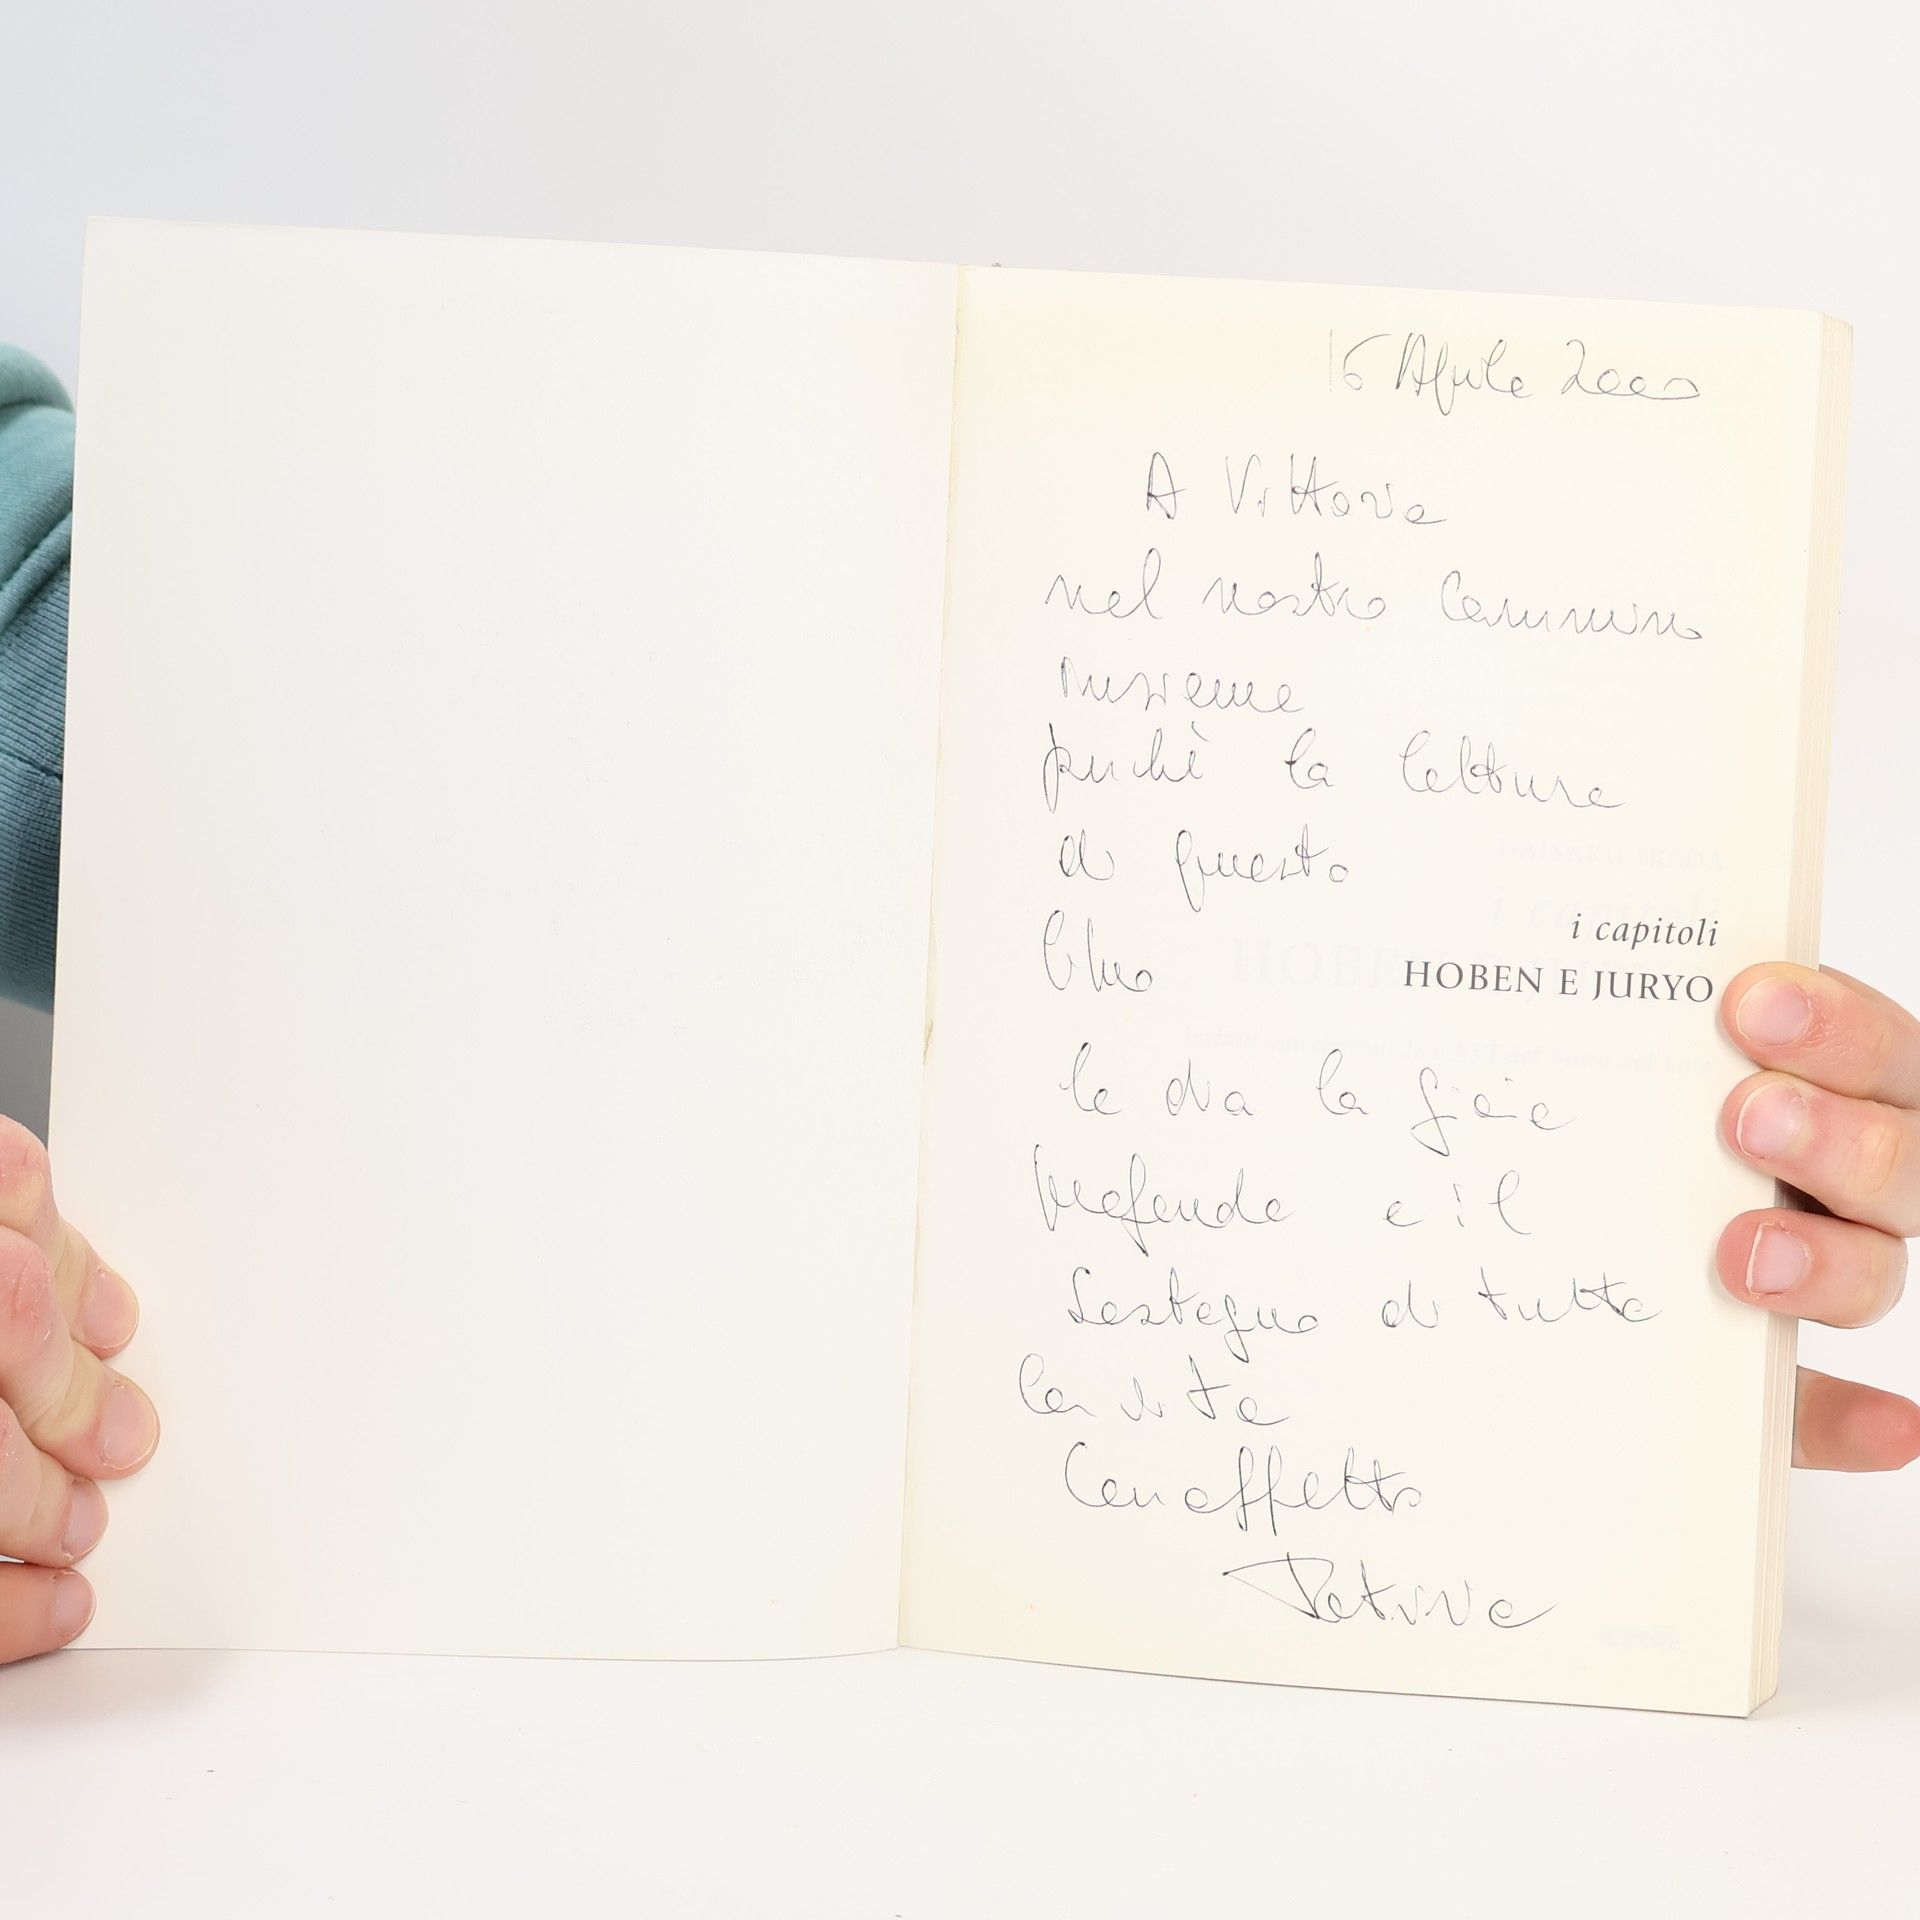 16 Aprile 2000
A Vittoria
nel nostro cammino
insieme
perchè la lettura
di questo
libro
i capitoli
HOBEN E JURYO
le dia la gioia
profonda e il
sostegno di tutta
la vita
Con affetto